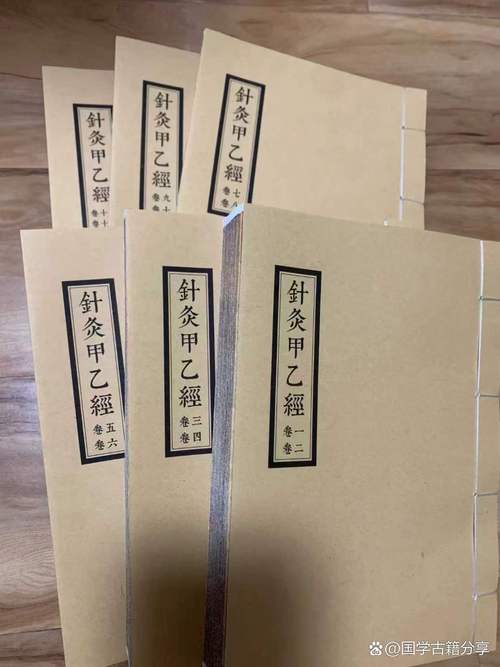 針灸甲乙經
卷十
卷十
針灸甲乙經
卷九
卷十
針灸甲乙經
卷七
卷八
針灸甲乙經
卷五
卷六
針灸甲乙經
卷三
卷四
針灸甲乙經
卷一
卷二
@国学古籍分享